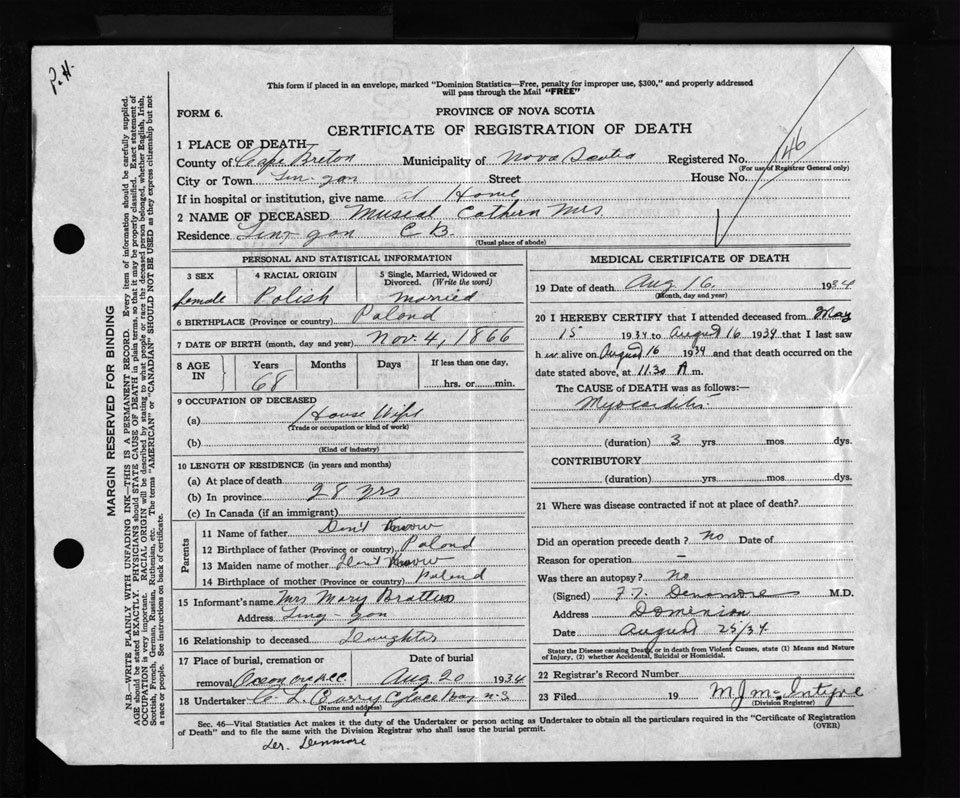 P.H.
This form if placed in an envelope, marked "Dominion Statistics—Free, penalty for improper use, $300," and properly addressed
will pass through the Mail "FREE"
FORM 6.
PROVINCE OF NOVA SCOTIA
CERTIFICATE OF REGISTRATION OF DEATH
1 PLACE OF DEATH
County of Cape Breton Municipality of Nova Scotia Registered No. 146
(For use of Registrar General only)
City or Town Lin-gan Street House No.
If in hospital or institution, give name at Home
2 NAME OF DECEASED Museal Cathern Mrs
Residence Lin-gan C B.
(Usual place of abode)
PERSONAL AND STATISTICAL INFORMATION
3 SEX 4 RACIAL ORIGIN 5 Single, Married, Widowed or
Divorced. (Write the word)
female Polish Married
6 BIRTHPLACE (Province or country) Poland
7 DATE OF BIRTH (month, day and year) Nov. 4, 1866
8 AGE IN Years Months Days If less than one day,
68 hrs. or min.
9 OCCUPATION OF DECEASED
(a) House Wife
(Trade or occupation or kind of work)
(b)
(Kind of industry)
10 LENGTH OF RESIDENCE (in years and months)
(a) At place of death
(b) In province 28 yrs
(c) In Canada (if an immigrant)
Parents
11 Name of father Don't Know
12 Birthplace of father (Province or country) Poland
13 Maiden name of mother Don't Know
14 Birthplace of mother (Province or country) Poland
15 Informant's name Mrs Mary
Address Ling-gan
16 Relationship to deceased Daughter
17 Place of burial, cremation or Date of burial
removal Aug 20 1934
18 Undertaker C. L. Barry Glace Bay N.S
(Name and address)
MEDICAL CERTIFICATE OF DEATH
19 Date of death Aug 16. 1934
(Month, day and year)
20 I HEREBY CERTIFY that I attended deceased from May
15 1934 to August 16 1934 that I last saw
h er alive on August 16 1934 and that death occurred on the
date stated above, at 11.30 A m.
The CAUSE OF DEATH was as follows:—
Myocarditis
(duration) 3 yrs. mos. dys.
CONTRIBUTORY
(duration) yrs. mos. dys.
21 Where was disease contracted if not at place of death?
Did an operation precede death? No Date of
Reason for operation —
Was there an autopsy? No
(Signed) Densmore M.D.
Address Dominion
Date August 25/34
State the Disease causing Death, or in death from Violent Causes, state (1) Means and Nature
of Injury, (2) whether Accidental, Suicidal or Homicidal.
22 Registrar's Record Number
23 Filed 19 M J McIntyre
(Division Registrar)
Sec. 46—Vital Statistics Act makes it the duty of the Undertaker or person acting as Undertaker to obtain all the particulars required in the "Certificate of Registration
of Death" and to file the same with the Division Registrar who shall issue the burial permit.
(OVER)
MARGIN RESERVED FOR BINDING
N.B.—WRITE PLAINLY WITH UNFADING INK—THIS IS A PERMANENT RECORD. Every item of information should be carefully supplied.
AGE should be stated EXACTLY. PHYSICIANS should STATE CAUSE OF DEATH in plain terms, so that it may be properly classified. Exact statement of
OCCUPATION is very important. RACIAL ORIGIN will be described by stating to what people or race the deceased person belonged, whether English, Irish,
Scottish, French, German, Russian, Ruthenian, etc. The terms "AMERICAN" or "CANADIAN" SHOULD NOT BE USED as they express citizenship but not
a race or people. See instructions on back of certificate.